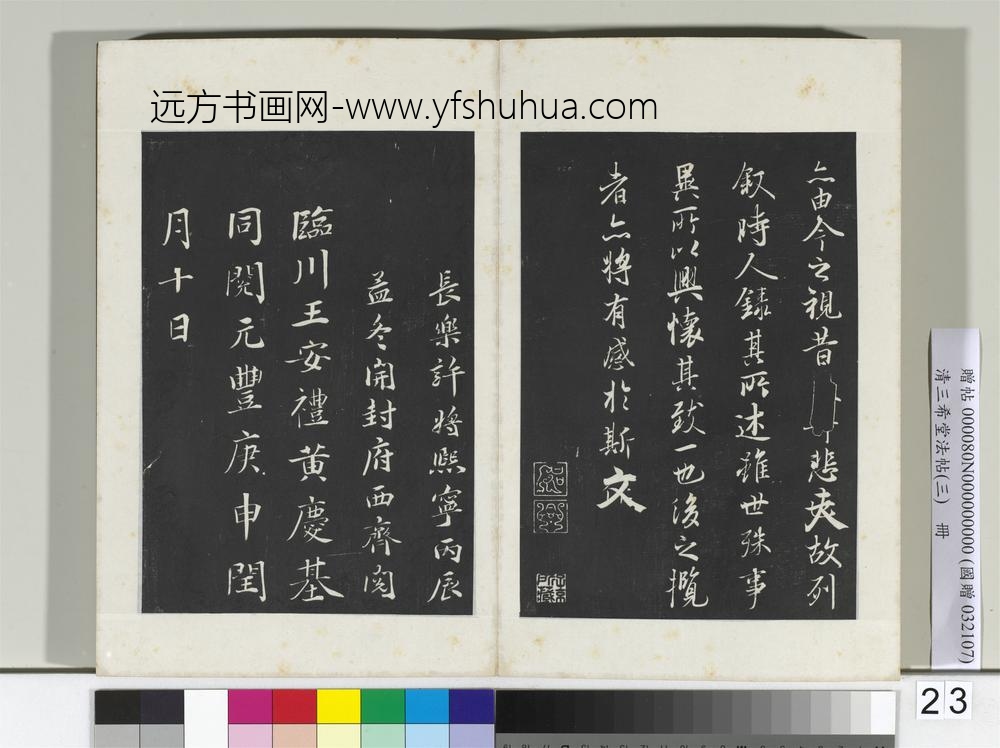 远方书画网-www.yfshuhua.com
亦由今之視昔悲夫故列
敘時人錄其所述雖世殊事
異所以興懷其致一也後之攬
者亦將有感於斯文
長樂許將熙寧丙辰
孟冬開封府西齋閱
臨川王安禮黄慶基
同閱元豐庚申閏
月十日
贈帖 000080N000000000 (國贈 032107)
清三希堂法帖(三) 冊
23